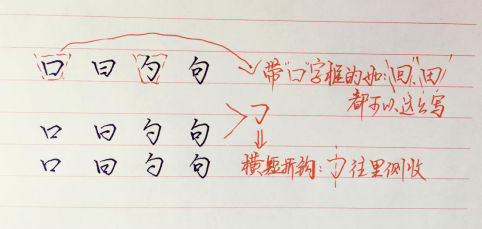 口 曰 勺 句 带“口”字框的如:回、田
都可以这么写
口 曰 勺 句 ㇆
口 曰 勺 句 横短折钩:㇆往里侧收